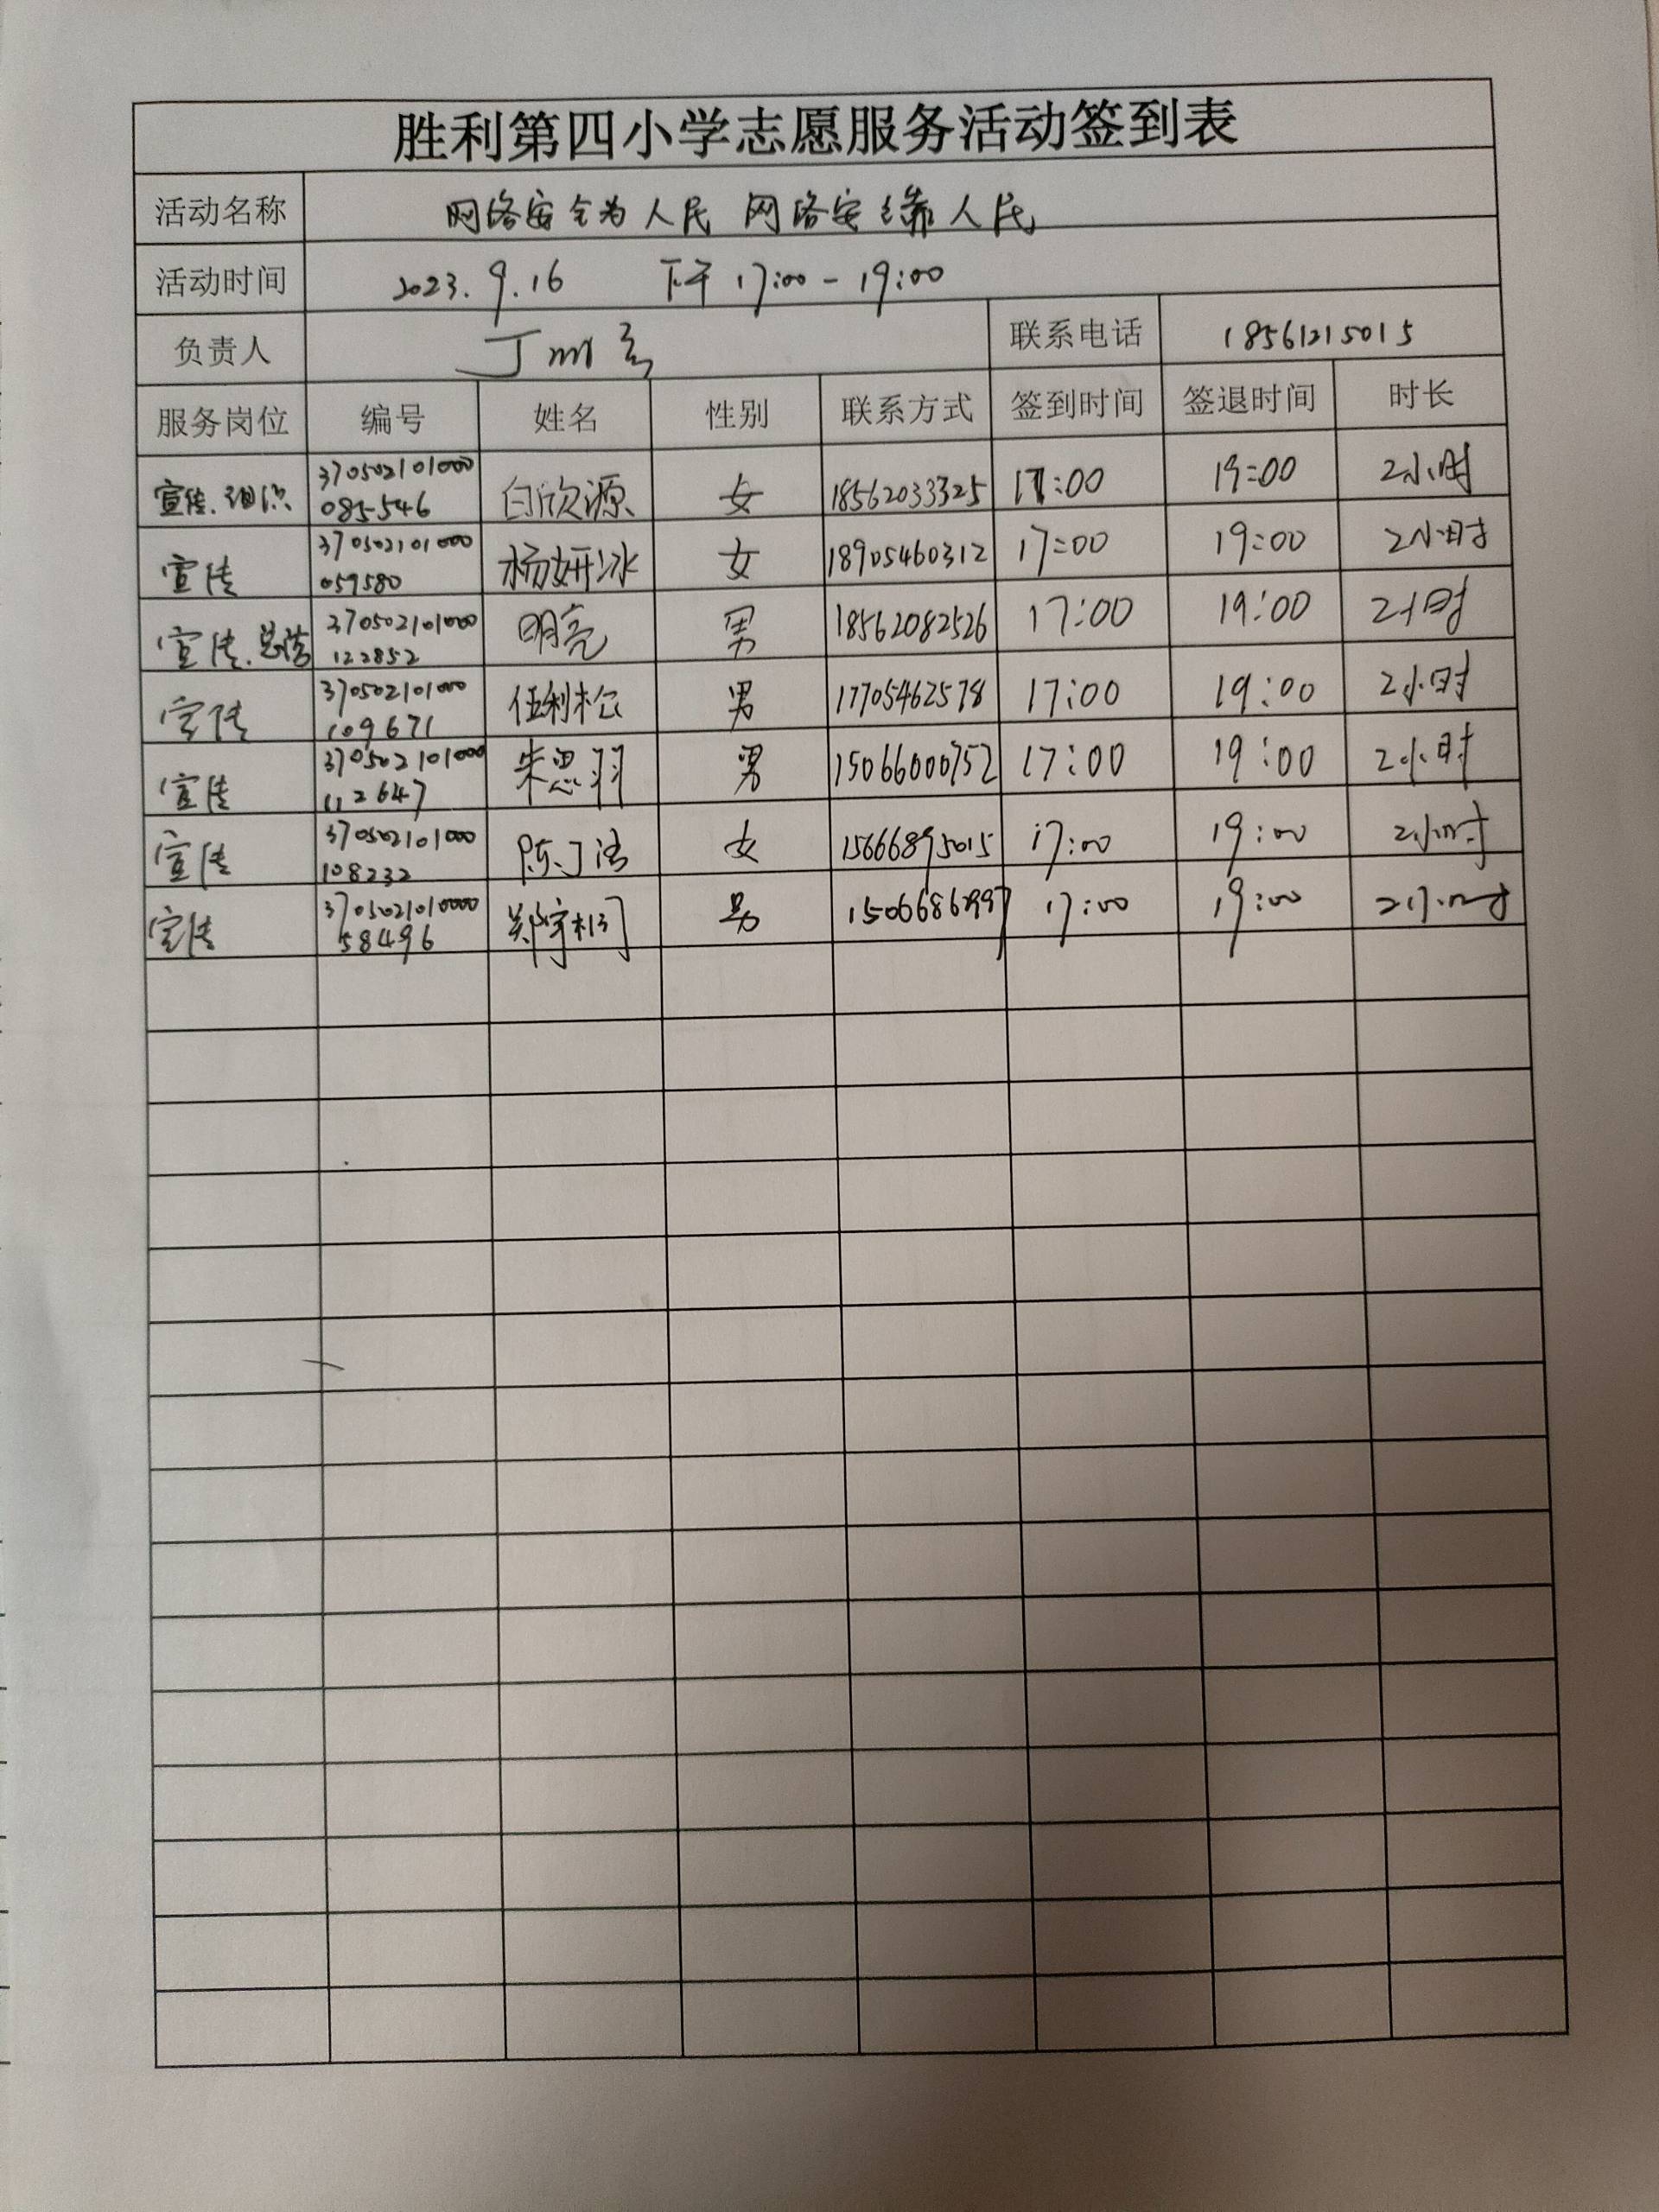 胜利第四小学志愿服务活动签到表
活动名称 网络安全为人民 网络安全靠人民
活动时间 2023.9.16 下午 17:00-19:00
负责人 丁 联系电话 18561215015
服务岗位 编号 姓名 性别 联系方式 签到时间 签退时间 时长
宣传、组织 370502101000 白欣源 女 18562033325 17:00 19:00 2小时
085546
宣传 370502101000 杨妍冰 女 18905460312 17:00 19:00 2小时
059580
宣传、总结 370502101000 明亮 男 18562082526 17:00 19:00 2小时
122852
宣传 370502101000 任利松 男 17705462578 17:00 19:00 2小时
109671
宣传 370502101000 朱思羽 男 15066000752 17:00 19:00 2小时
112647
宣传 370502101000 陈丁洁 女 15666895015 17:00 19:00 2小时
108232
宣传 3705021010000 郑宇 男 15066862997 17:00 19:00 2小时
58496